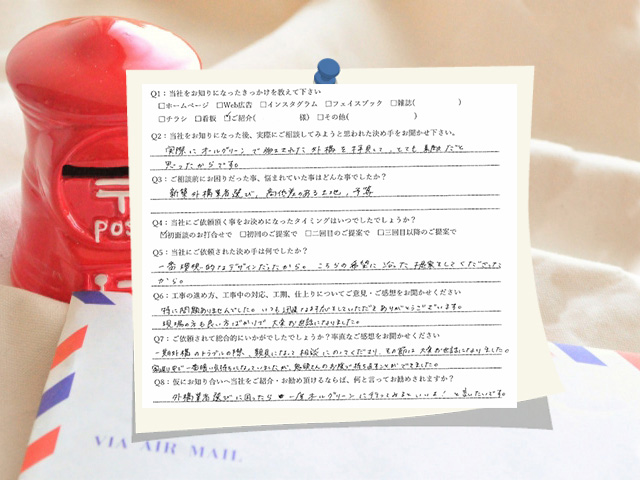 〒
POS
Q1：当社をお知りになったきっかけを教えて下さい
□ホームページ □Web広告 □インスタグラム □フェイスブック □雑誌( )
□チラシ □看板 ☑ご紹介( 様) □その他( )
Q2：当社をお知りになった後、実際にご相談してみようと思われた決め手をお聞かせ下さい。
実際にオールグリーンで施工された外構を拝見して、とても素敵だと
思ったからです。
Q3：ご相談前にお困りだった事、悩まれていた事はどんな事でしたか？
新築外構業者選び、高低差のある土地、予算
Q4：当社にご依頼頂く事をお決めになったタイミングはいつでしたでしょうか？
☑初面談のお打合せで □初回のご提案で □二回目のご提案で □三回目以降のご提案で
Q5：当社にご依頼された決め手は何でしたか？
一番理想的なデザインだったから。こちらの希望に沿った提案をしてくださった
から。
Q6：工事の進め方、工事中の対応、工期、仕上りについてご意見・ご感想をお聞かせください
特に問題ありませんでした。いつも迅速な対応をしていただきありがとうございます。
現場の方も良い方ばかりで大変お世話になりました。
Q7：ご依頼されて総合的にいかがでしたでしょうか？率直なご感想をお聞かせください
外構のトラブルの際、親身になって相談にのってくださり、その節は大変お世話になりました。
Q8：仮にお知り合いへ当社をご紹介・お勧め頂けるならば、何と言ってお勧めされますか？
外構業者選びに困ったら 一度オールグリーンに行ってみるといいよ！と言いたいです。
VIA AIR MAIL